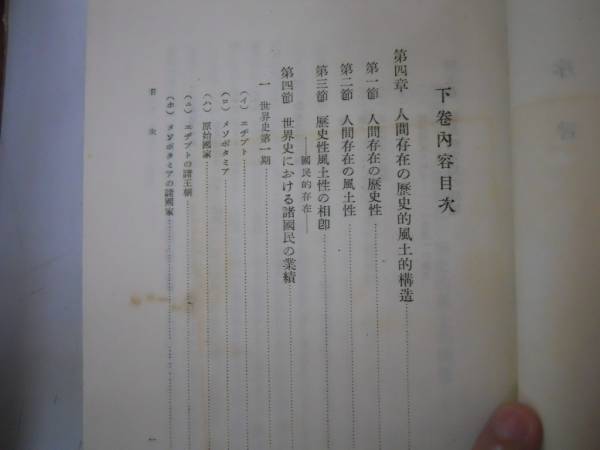 下卷內容目次
第四章　人間存在の歷史的風土的構造
第一節　人間存在の歷史性
第二節　人間存在の風土性
第三節　歷史性風土性の相卽
――國民的存在――
第四節　世界史における諸國民の業績
一　世界史第一期
（イ）　エヂプト
（ロ）　メソポタミア
（ハ）　原始國家
（ニ）　エヂプトの諸王朝
（ホ）　メソポタミアの諸國家
目　次
一